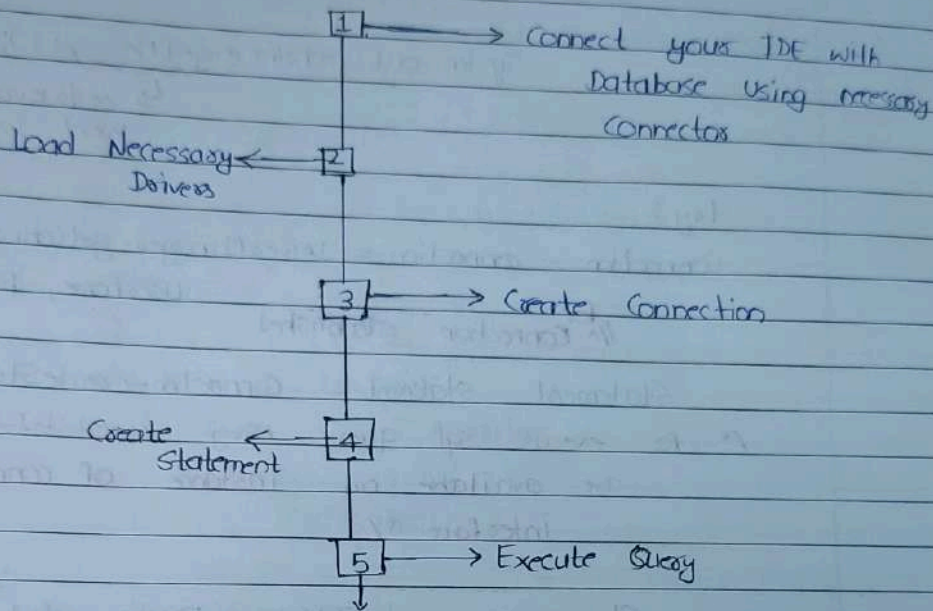 1
Connect your IDE with
Database Using necessary
Connector
Load Necessary
Drivers
2
3
Create Connection
Create
Statement
4
5
Execute Query